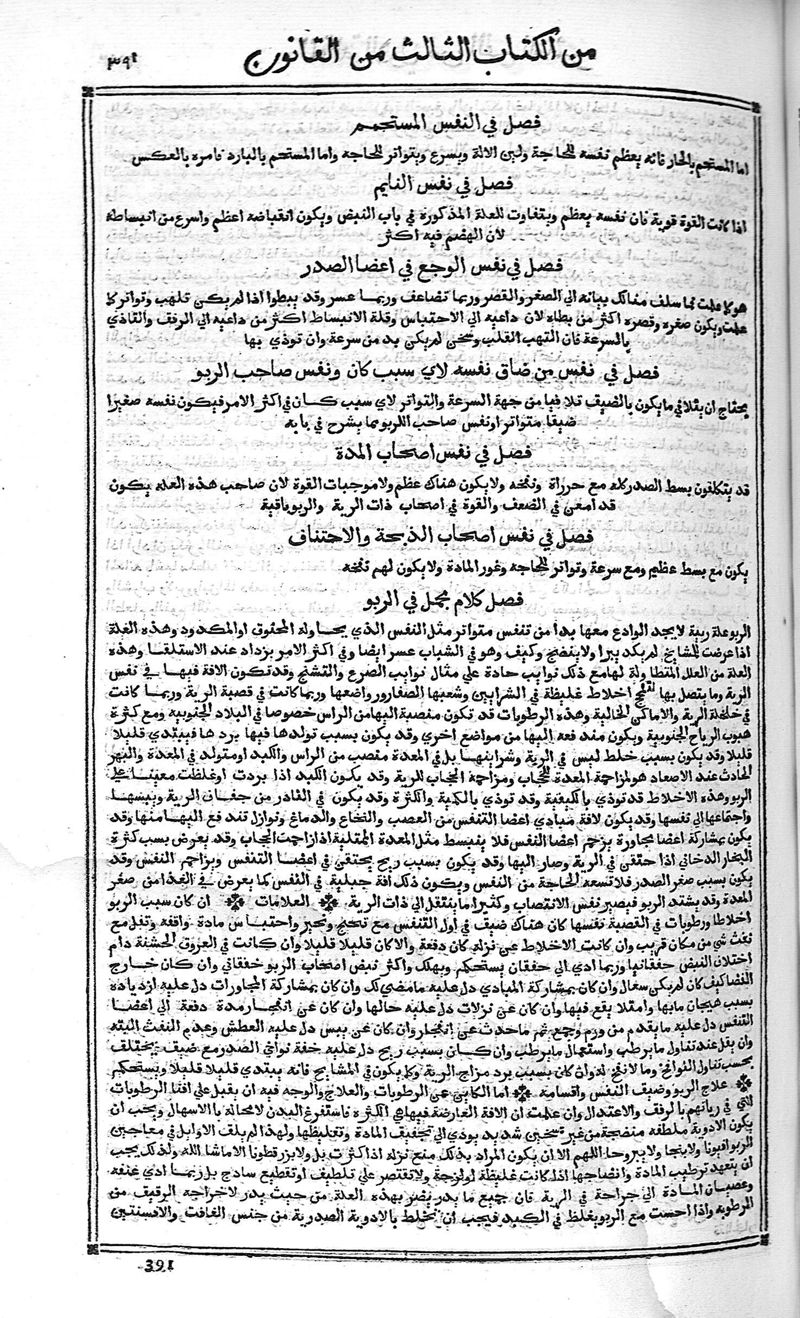 من الكتاب الثالث من القانون
٣٩١
فصل في النفس المستحم
اما المستحم بالحار فانه يعظم نفسه للحاجة ولين الالة ويسرع ويتواتر للحاجه واما المستحم بالبارد فامره بالعكس
فصل في نفس النايم
اذا كانت القوة قوية فان نفسه يعظم ويتفاوت للعلة المذكورة في باب النبض ويكون انقباضه اعظم واسرع من انبساطه
لان الهضم فيه اكثر
فصل في نفس الوجع في اعضا الصدر
هو كما علمت مما سلف منا لك بيانه الي الصغر والقصر وربما تضاعف وربما عسر وقد يبطوا اذا لم يكن تلهب وتواتر كما
علمت ويكون صغره وقصره اكثر من بطاه لان داعيه الي الاحتباس وقلة الانبساط اكثر من داعيه الي الرفق والتاذي
بالسرعة فان التهب القلب وسخن لم يكن بد من سرعة وان توذي بها
فصل في نفس من ضاق نفسه لاي سبب كان ونفس صاحب الربو
يحتاج ان يتلافي ما يكون بالضيق تلافيا من جهة السرعة والتواتر لاي سبب كان في اكثر الامر فيكون نفسه صغيرا
ضيقا متواترا ونفس صاحب الربو مما يشرح في بابه
فصل في نفس اصحاب المدة
قد يتكلفون بسط الصدر كله مع حرارة ونفخه ولا يكون هناك عظم ولا موجبات القوة لان صاحب هذه العلة يكون
قد امعن في الضعف والقوة في اصحاب ذات الرية والربو باقية
فصل في نفس اصحاب الذبحة والاختناق
يكون مع بسط عظيم ومع سرعة وتواتر للحاجه وغور المادة ولا يكون لهم نفخه
فصل كلام مجمل في الربو
الربو علة ريية لا يجد الوادع معها بدا من تنفس متواتر مثل النفس الذي يحاوله المخنوق او المكدود وهذه العلة
اذا عرضت للمشايخ لم يكد يبرا ولا ينضج وكيف وهو في الشباب عسر ايضا وفي اكثر الامر يزداد عند الاستلقا وهذه
العلة من العلل المتطاولة لها مع ذلك نوايب حادة علي مثال نوايب الصرع والتشنج وقد تكون الافة فيها في نفس
الرية وما يتصل بها لتلحج اخلاط غليظة في الشرايين وشعبها الصغار ورواضعها وربما كانت في قصبة الرية وربما كانت
في خلخلة الرية والاماكن الخالية وهذه الرطوبات قد تكون منصبة اليها من الراس خصوصا في البلاد الجنوبية ومع كثرة
هبوب الرياح الجنوبية ويكون مندفعة اليها من مواضع اخري وقد يكون بسبب تولدها فيها بردها فيبتدي قليلا
قليلا وقد يكون بسبب خلط ليس في الرية وشرايينها بل في المعدة منصب من الراس والكبد او متولد في المعدة والبهر
الحادث عند الاصعاد هو لمزاحمة المعدة للحجاب ومزاحمة الحجاب للرية وقد يكون الكبد اذا بردت او غلظت معينا علي
الربو وهذه الاخلاط قد توذي بالكيفية وقد توذي بالكمية والكثرة وقد يكون في النادر من جفاف الرية ويبسها
واجتماعها الي نفسها وقد يكون لافة مبادي اعضا التنفس من العصب والنخاع والدماغ ونوازل تندفع اليها منها وقد
يكون بمشاركة اعضا مجاورة يزحم اعضا النفس فلا ينبسط مثل المعدة الممتلية اذا زاحمت الحجاب وقد يعرض بسبب كثرة
البخار الدخاني اذا احتقن في الرية وصار اليها وقد يكون بسبب ريح يحتقن في اعضا التنفس ويزاحم النفس وقد
يكون بسبب صغر الصدر فلا تسعه الحاجة من النفس ويكون ذلك افة جبلية في النفس كما يعرض في الغذا من صغر
المعدة وقد يشتد الربو فيصير نفس الانتصاب وكثيرا ما ينتقل الي ذات الرية. العلامات ان كان سبب الربو
اخلاطا ورطوبات في القصبة نفسها كان هناك ضيق في اول التنفس مع تنحنح ونحير واحتباس مادة واقفه وثقل مع
نفث شي من مكان قريب وان كانت الاخلاط عن نزلة كان دفعة والا كان قليلا قليلا وان كانت في العروق الخشنة دام
اختلاف النبض خفقانيا وربما ادي الي خفقان يستحكم ويهلك واكثر نبض اصحاب الربو خفقاني وان كان خارج
الفضا كيف كان لم يكن سعال وان كان بمشاركة المبادي دل عليه ما مضي لك وان كان بمشاركة المجاورات دل عليه ازدياده
بسبب هيجان ما بها وامتلا يقع فيها وان كان عن نزلات دل عليه حالها وان كان عن انفجار مدة دفعة الي اعضا
التنفس دل عليه ما يقدم من ورم وجمع ثم ما حدث عن انفجار وان كان عن يبس دل عليه العطش وعدم النفث البته
وان يقل عند تناول ما يرطب واستعمال ما يرطب وان كان بسبب ريح دل عليه خفة نواحي الصدر مع ضيق يختلف
بحسب تناول النوافخ وما لا نفخ له وان كان بسبب برد مزاج الرية وكما يكون في المشايخ فانه يبتدي قليلا قليلا ويستحكم
علاج الربو وضيق النفس واقسامه اما الكاين عن الرطوبات والعلاج والوجه فيه ان يقبل علي افنا الرطوبات
التي في رياتهم بالرفق والاعتدال وان علمت ان الافة العارضة فيها هي الكثرة فاستفرغ البدن لا محالة بالاسهال ويجب ان
يكون الادوية ملطفه منضجة من غير تسخين شديد يودي الي تجفيف المادة وتغليظها ولهذا لم يلق الاوايل في معاجين
الربو افيونا ولا بنجا ولا يبروحا اللهم الا ان يكون المراد بذلك منع نزلة اذا كثرت بل ولا بزر قطونا الا ما شا الله ولذلك يجب
ان يتعهد ترطيب المادة وانضاجها اذا كانت غليظة او لزجة ولا تقتصر علي تلطيف او تقطيع ساذج بل ربما ادي عنفه
وعصيان المادة الي جراحة في الرية فان جميع ما يدر يضر بهذه العلة من حيث يدر لاخراجه الرقيق من
الرطوبه واذا احست مع الربو بغلظ في الكبد فيجب ان تخلط بالادوية الصدرية من جنس الغافت والافسنتين
391